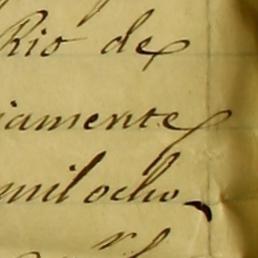 Rio de
iamente
mil ocho